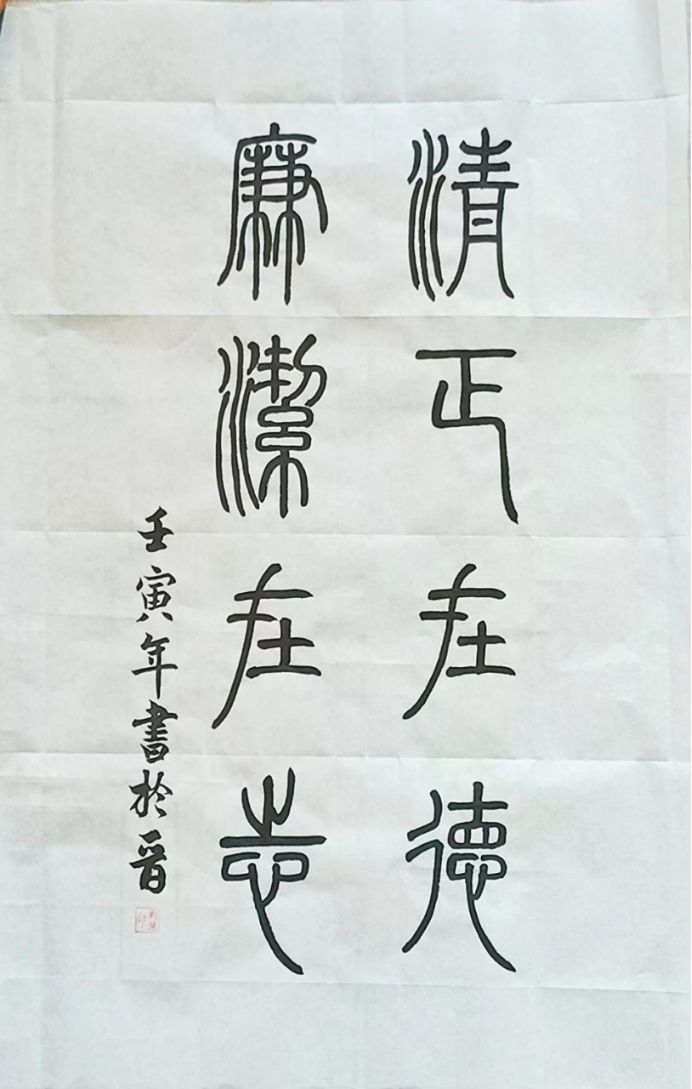 清正在德
廉潔在志
壬寅年書於晉